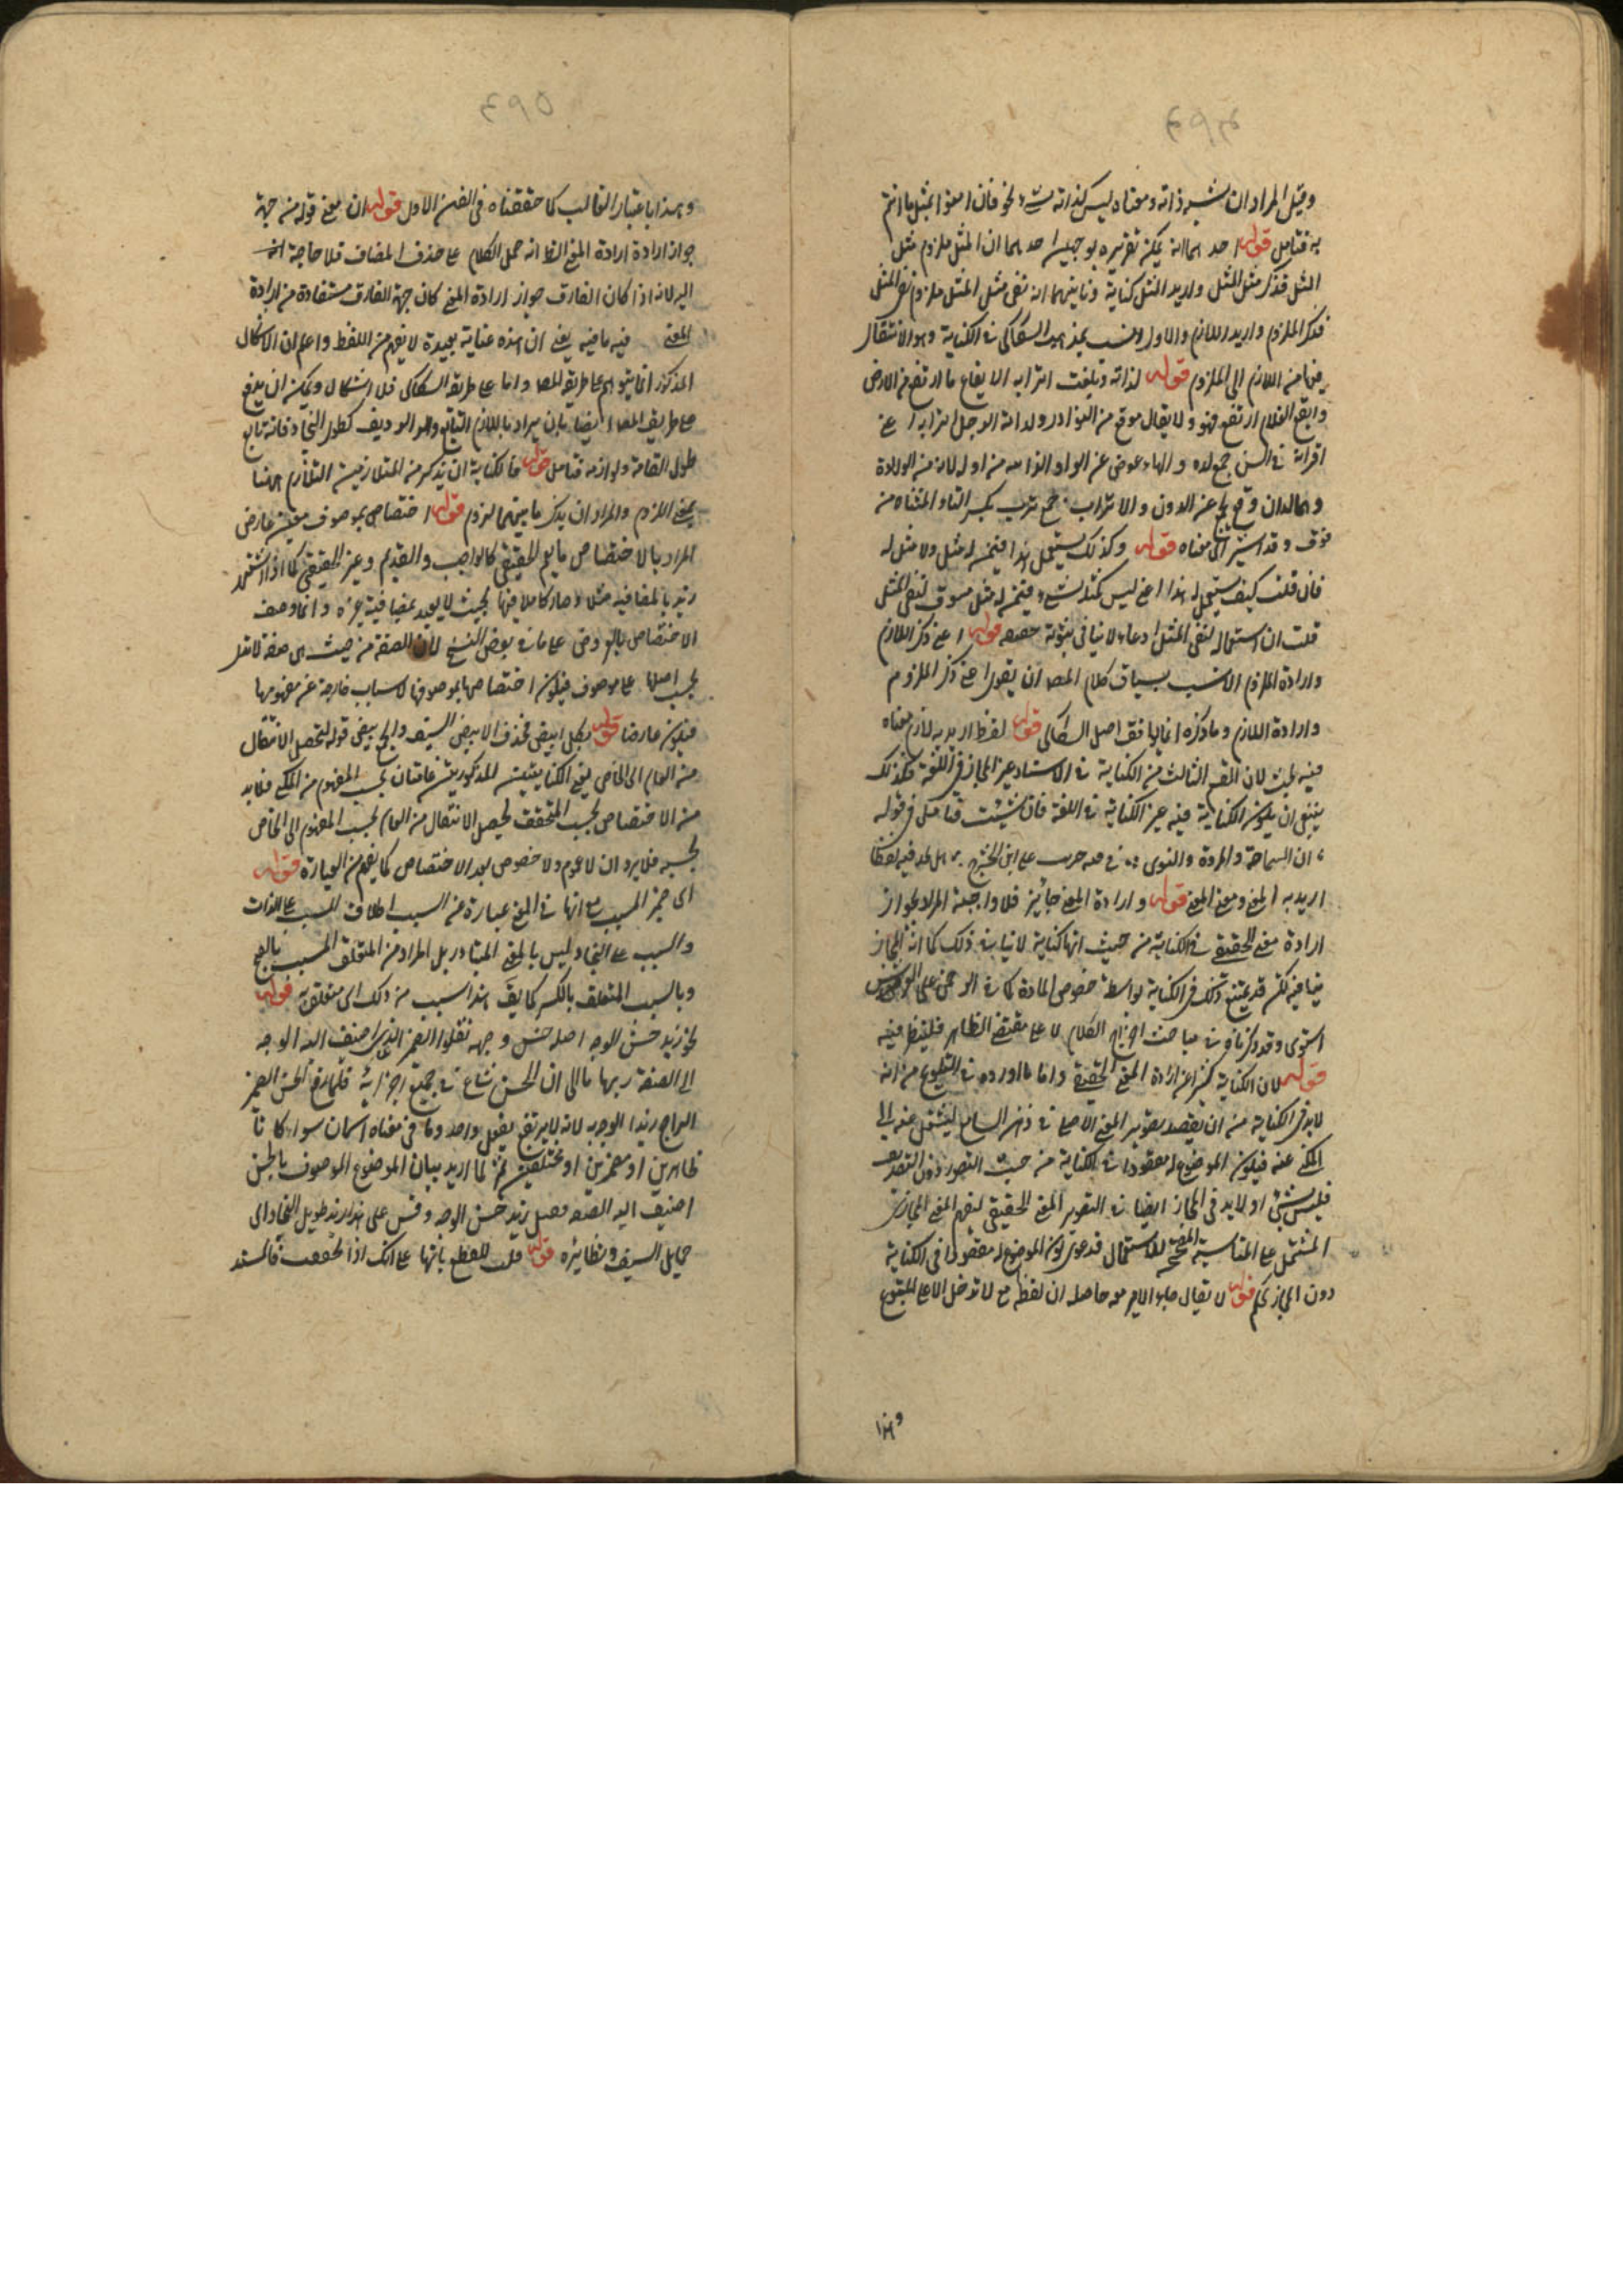 ٤٩٤
وقيل المراد ان شبه ذاته ومعناه ليس كذاته شيء نحو فان امنوا بمثل ما انتم
به فتأمل قوله احدهما انه يمكن تقريره بوجهين احدهما ان المثل ملزوم مثل
المثل فذكر مثل المثل واريد المثل كناية وثانيهما ان نفى مثل المثل ملزوم نفى المثل
فذكر الملزوم واريد اللازم والاول انسب بمذهب السكاكى فى الكناية وهو الانتقال
فيها من اللازم الى الملزوم قوله لذاته وبلغت اترابه الايفاع ما ارتفع من الارض
وايفع الغلام ارتفع فهو ولا يقال موفع من النوادر ولدات الرجل اترابه اعنى
اقرانه فى السن جمع لدة والهاء عوض عن الواو الذاهبة من اوله لانه من الولادة
وهما لدان وقد يجمع عن الدون والاتراب جمع ترب بكسر التاء المثناة من
فوق وقد اشير الى معناه قوله وكذلك يستعمل هذا فيمن له مثل ولا مثل له
فان قلت كيف يستعمل هذا اعنى ليس كمثله شيء فيمن له مثل مسوق لنفى المثل
قلت ان استعماله لنفى المثل ادعاء لا ينافى ثبوته حقيقة قوله اعنى ذكر اللازم
وارادة الملزوم الانسب بسياق كلام المصـ ان يقول اعنى ذكر الملزوم
وارادة اللازم وما ذكره انما يوافق اصل السكاكى قوله لفظ اريد به لازم معناه
فيه بحث لان القسم الثالث من الكناية فى الاسناد عين المجاز فى اللغة فكذلك
ينبغى ان يكون الكناية فيه عين الكناية فى اللغة فان شئت فتأمل فى قوله
ان السماحة والمروة والندى فى قبة ضربت على ابن الحشرج هل تجد فيه لفظا
اريد به المعنى ومعنى المعنى قوله وارادة المعنى جائز فلا واجبة المراد بجواز
ارادة معنى الحقيقى فى الكناية من حيث انها كناية لا ينافى ذلك كما ان المجاز
ينافيه لكن قد يمتنع ذلك فى الكناية بواسطة خصوص المادة كما فى الرحمن على العرش
استوى وقد ذكرناه فى مباحث اخراج الكلام لا على مقتضى الظاهر فلينظر فيه
قوله لان الكناية كثيرا عن ارادة المعنى الحقيقى واما ما اورده فى التلويح من انه
لا بد فى الكناية من ان يقصد تصوير المعنى الاصلى فى ذهن السامع لينتقل منه الى
المكنى عنه فيكون الموضوع له مقصودا فى الكناية من حيث التصور دون التصديق
فليس بشيء اذ لا بد فى المجاز ايضا من التصوير المعنى الحقيقى ليفهم المعنى المجازى
المشتمل على المناسبة المصححة للاستعمال فدعوى كون الموضوع له مقصودا فى الكناية
دون المجاز تحكم قوله لا يقال هذا حاصله ان لفظ مع لا تدخل الا على المتبوع
وهذا
٤٩٥
وهذا باعتبار الغالب كما حققناه فى الفن الاول قوله ان معنى قوله من جهة
جواز ارادة ارادة المعنى الظا انه حمل الكلام على حذف المضاف فلا حاجة
اليه لانه اذا كان الفارق جواز ارادة المعنى كان جهة الفارق مستفادة من ارادة
المعنى فيه ما فيه يعنى ان هذه عناية بعيدة لا يفهم من اللفظ واعلم ان الاشكال
المذكور انما يتوجه على طريق المصـ واما على طريقة السكاكى فلا اشكال ويمكن ان يدفع
على طريق المصـ ايضا بان يراد باللازم التابع والرديف كطول النجاد فانه تابع
طول القامة ولوازمه فتأمل قوله فالكناية ان يذكر من المتلازمين التلازم ههنا
بمعنى اللزوم والمراد ان يذكر ما بينهما لزوم قوله اختصاص بموصوف معين عارض
المراد بالاختصاص ما يعم الحقيقى كالواجب والقديم وغير الحقيقى كما اذا اشتهر
زيد بالمضيافية مثلا وصار كاملا فيها بحيث لا يعد بمضيافية غيره وانما وصف
الاختصاص بالعروض على ما فى بعض النسخ لان الصفة من حيث هى صفة لا تدل
بحسب اصلها على موصوف فيكون اختصاصها بموصوفها لاسباب خارجة عن مفهومها
فيكون عارضا قوله بكل ابيض مخذم الابيض السيف والجمع بيض قوله لتحصل الانتقال
من العام الى الخاص يعنى الكنايتين المذكورتين خاصتان بحسب المفهوم من المكنى فلا بد
من الاختصاص بحسب المتحقق ليحصل الانتقال من العام بحسب المفهوم الى الخاص
بحسبه فلا يرد ان لا عموم ولا خصوص بعد الاختصاص كما يفهم من العبارة قوله
اى ضمير المسبب مع انها فى المعنى عبارة عن السبب اطلاق المسبب على الذات
والسبب على النجاد ليس بالمعنى المتبادر بل المراد من المتعلق المسبب بالفتح
وبالسبب المتعلق بالكسر كما يقـ هذا سبب من ذلك اى متعلق به قوله
نحو زيد حسن الوجه اصله حسن وجهه نقلوا الضمير الذى اضيف اليه الوجه
الى الصفة ايهاما الى ان الحسن شاع فى جميع اجزائه فلما رفع الحسن الضمير
الراجع الى زيد الوجه لانه لا يرتفع بفعل واحد وما فى معناه اسمان سواء كانا
ظاهرين او مضمرين او مختلفين ثم لما اريد بيان الموضع الموصوف بالحسن
اضيف اليه الصفة فقيل زيد حسن الوجه وقس على هذا زيد طويل النجاد اى
حمايل السيف ونظائره قوله قلت للقطع بانها على انك اذا تحققت فالمستند